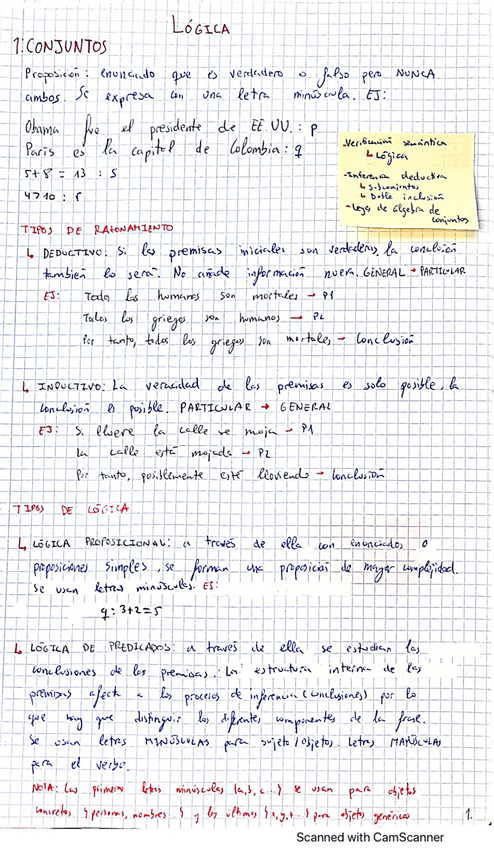 LÓGICA
1: CONJUNTOS
Proposición: enunciado que es verdadero o falso pero NUNCA
ambos. Se expresa con una letra minúscula. EJ:
Obama fue el presidente de EE.UU.: p
París es la capital de Colombia: q
5+8=13 : s
47>0 : r
-Verificación semántica
↳ Lógica
-Inferencia deductiva
↳ Subconjuntos
↳ Doble inclusión
-Leyes de álgebra de
conjuntos
TIPOS DE RAZONAMIENTO
↳ DEDUCTIVO: Si las premisas iniciales son verdaderas, la conclusión
también lo será. No añade información nueva. GENERAL → PARTICULAR
EJ: Todos los humanos son mortales → P1
Todos los griegos son humanos → P2
Por tanto, todos los griegos son mortales → Conclusión
↳ INDUCTIVO: La veracidad de las premisas es solo posible, la
conclusión es posible. PARTICULAR → GENERAL
EJ: Si llueve la calle se moja → P1
La calle está mojada → P2
Por tanto, posiblemente esté lloviendo → Conclusión
TIPOS DE LÓGICA
↳ LÓGICA PROPOSICIONAL: a través de ella con enunciados o
proposiciones simples, se forman una proposición de mayor complejidad.
Se usan letras minúsculas. EJ:
q: 3+2=5
↳ LÓGICA DE PREDICADOS: a través de ella se estudian las
conclusiones de las premisas. La estructura interna de las
premisas afecta a los procesos de inferencia (conclusiones) por lo
que hay que distinguir los diferentes componentes de la frase.
Se usan letras MINÚSCULAS para sujeto/objetos. Letras MAYÚSCULAS
para el verbo.
NOTA: Las primeras letras minúsculas (a,b,c...) se usan para objetos
concretos {personas, nombres...} y las últimas {x,y,z...} para objetos genéricos
1.
Scanned with CamScanner